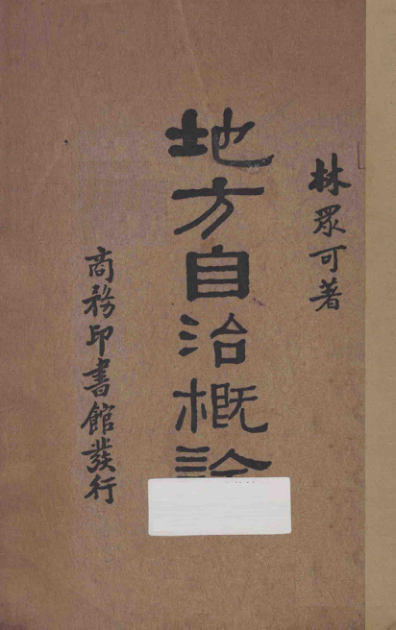 林眾可著
地方自治概論
商務印書館發行